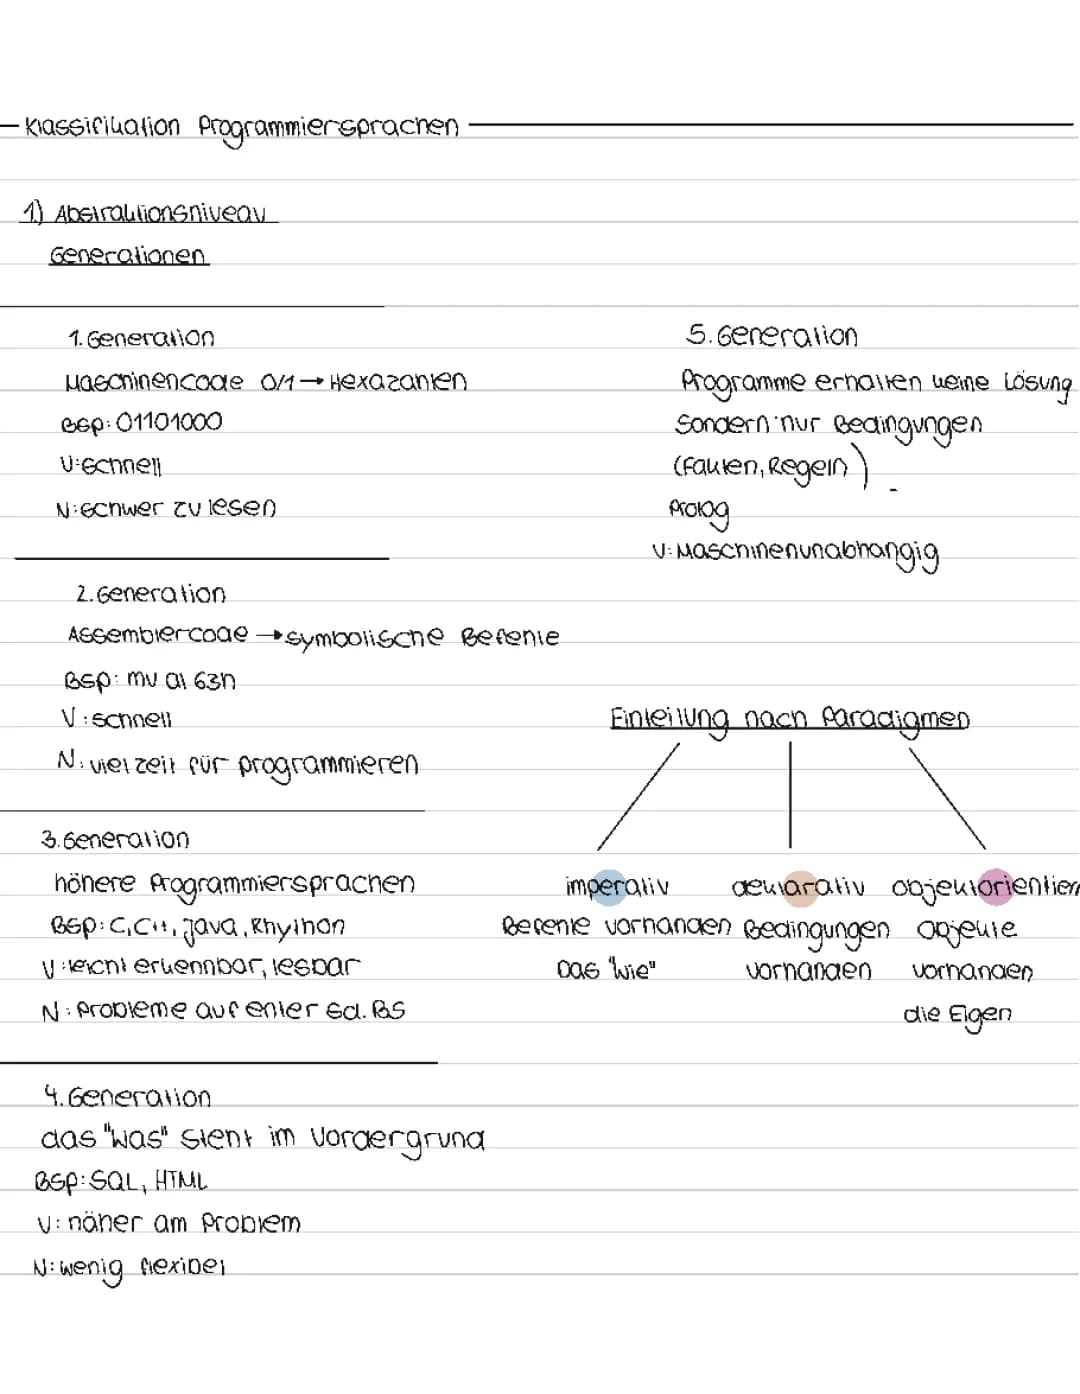 Klassifikation Programmiersprachen
1) Abstraktionsniveau
Generationen
1. Generation
Maschinencode 0/1 → Hexazahlen
BSP: 01101000
V: Schnell
N: Schwer zu lesen
2. Generation
Assemblercode → symbolische Befehle
BSP: mv al 63h
V: schnell
N: viel zeit für programmieren
3. Generation
höhere Programmiersprachen
BSP: C, C++, Java, Phython
V: leicht erkennbar, lesbar
N: Probleme auf enter sd. BS
4. Generation
das "was" steht im Vordergrund
BSP: SQL, HTML
V: näher am Problem
N: wenig flexibel
5. Generation
Programme erhalten keine Lösung
Sondern nur Bedingungen
(Fakten, Regeln)
Prolog
V: Maschinenunabhängig
Einteilung nach Paradigmen
imperativ deklarativ objektorientier
Befehle vorhanden Bedingungen Objekte
Das "wie" vorhanden vorhanden
die Eigen